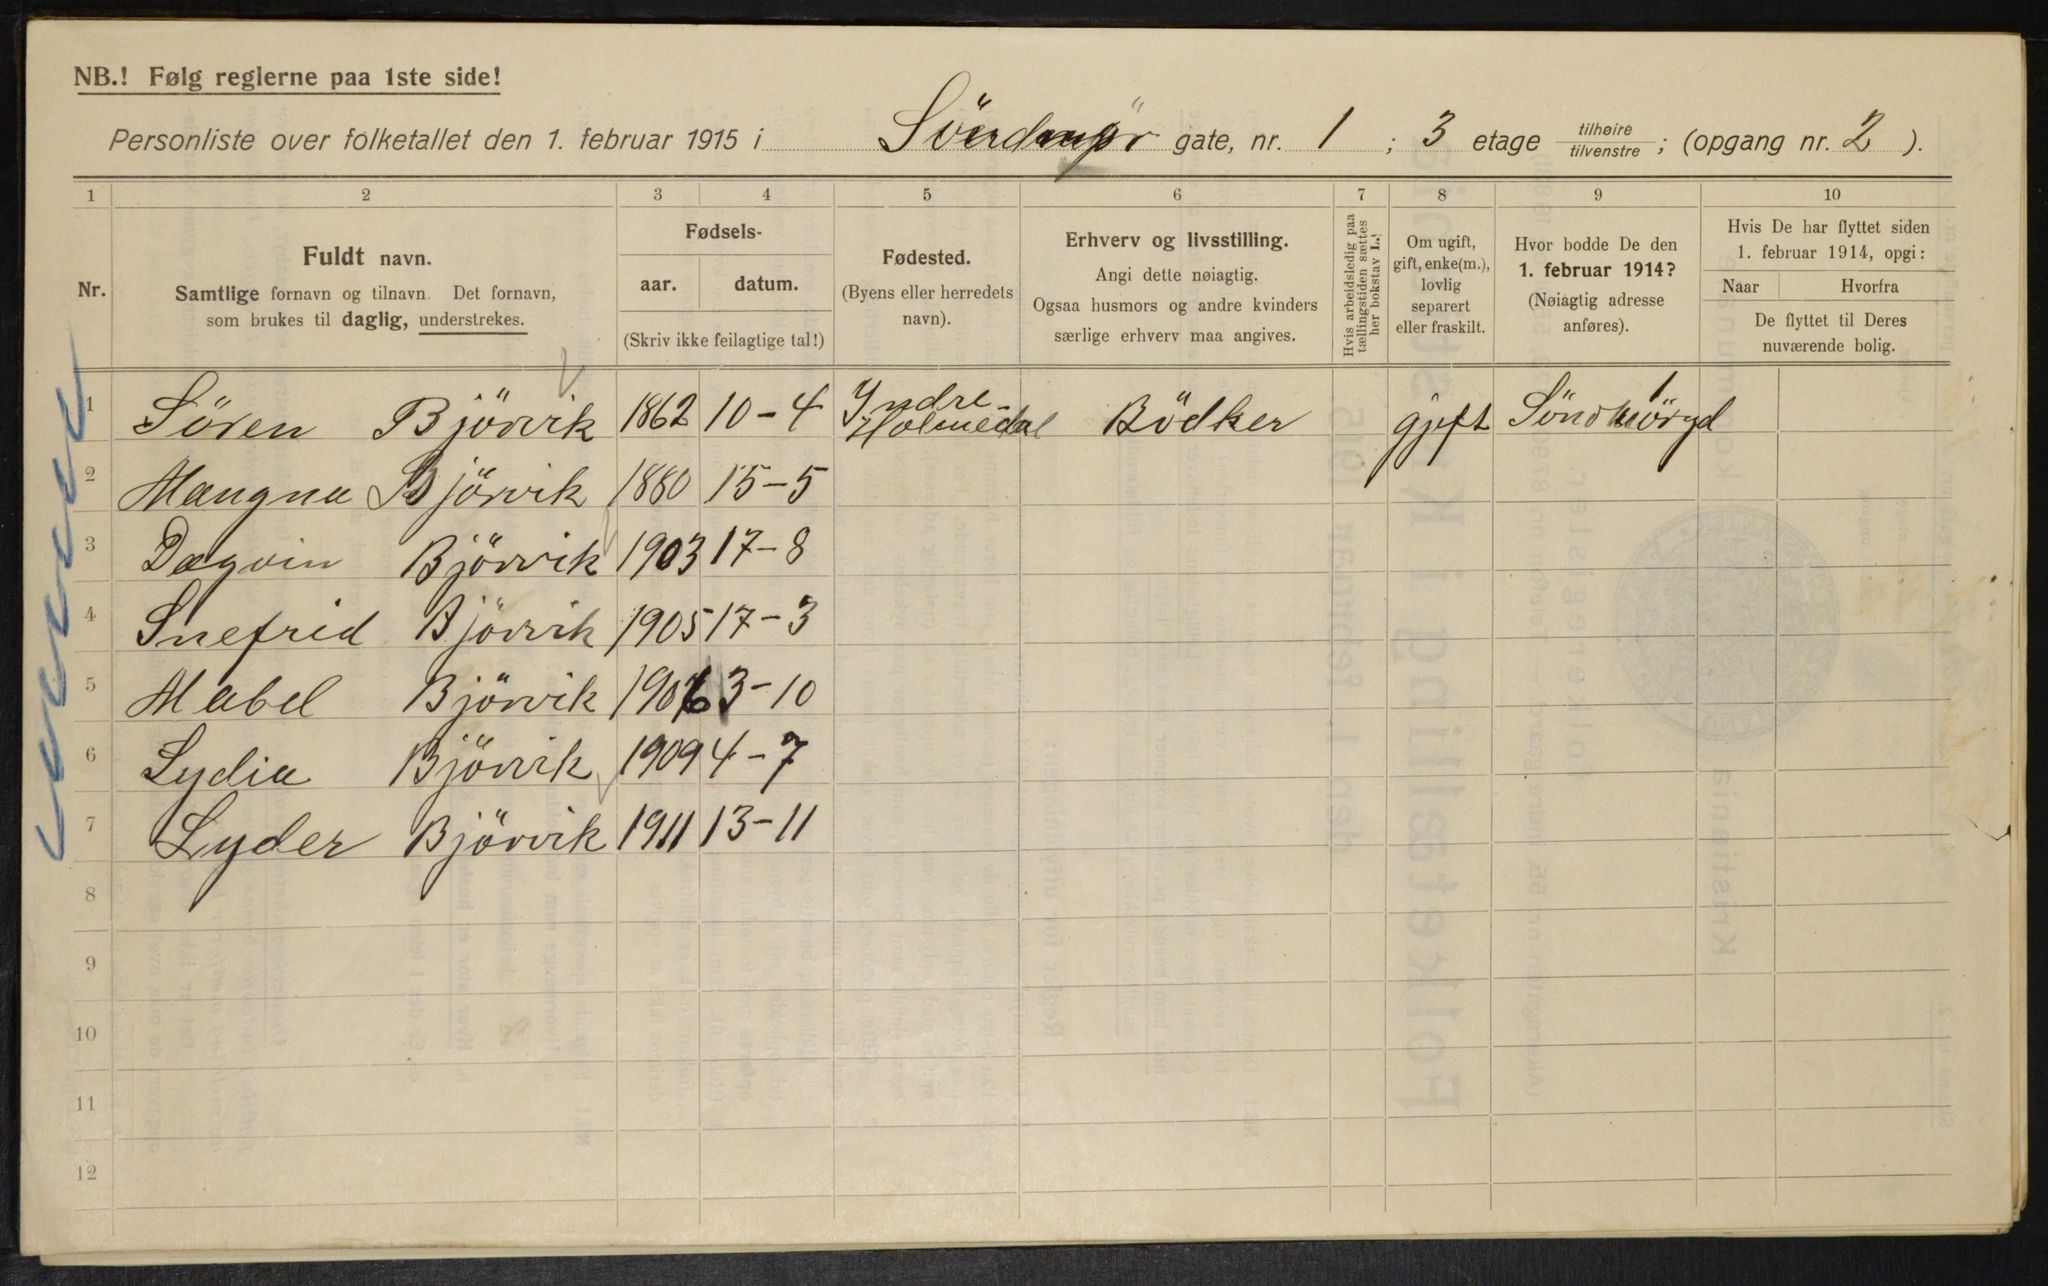 NB.! Følg reglerne paa 1ste side!
Personliste over folketallet den 1. februar 1915 i gate, nr. 1 ; 3 etage tilhøire tilvenstre ; (opgang nr. 2 ).
1 2 3 4 5 6 7 8 9 10
Nr.
Fuldt navn.
Samtlige fornavn og tilnavn. Det fornavn,
som brukes til daglig, understrekes.
Fødsels-
aar. datum.
(Skriv ikke feilagtige tal!)
Fødested.
(Byens eller herredets
navn).
Erhverv og livsstilling.
Angi dette nøiagtig.
Ogsaa husmors og andre kvinders
særlige erhverv maa angives.
Hvis arbeidsledig paa
tællingstiden sættes
her bokstav L.!
Om ugift,
gift, enke(m.),
lovlig
separert
eller fraskilt.
Hvor bodde De den
1. februar 1914?
(Nøiagtig adresse
anføres).
Hvis De har flyttet siden
1. februar 1914, opgi:
Naar Hvorfra
De flyttet til Deres
nuværende bolig.
1 Sören Björvik 1862 10-4 Yndre-Holmedal Bödker gjift 1
2 Mangna Björvik 1880 15-5
3 Dagvin Björvik 1903 17-8
4 Snefrid Björvik 1905 17-3
5 Mabel Björvik 1906 3-10
6 Lydia Björvik 1909 4-7
7 Lyder Björvik 1911 13-11
8
9
10
11
12